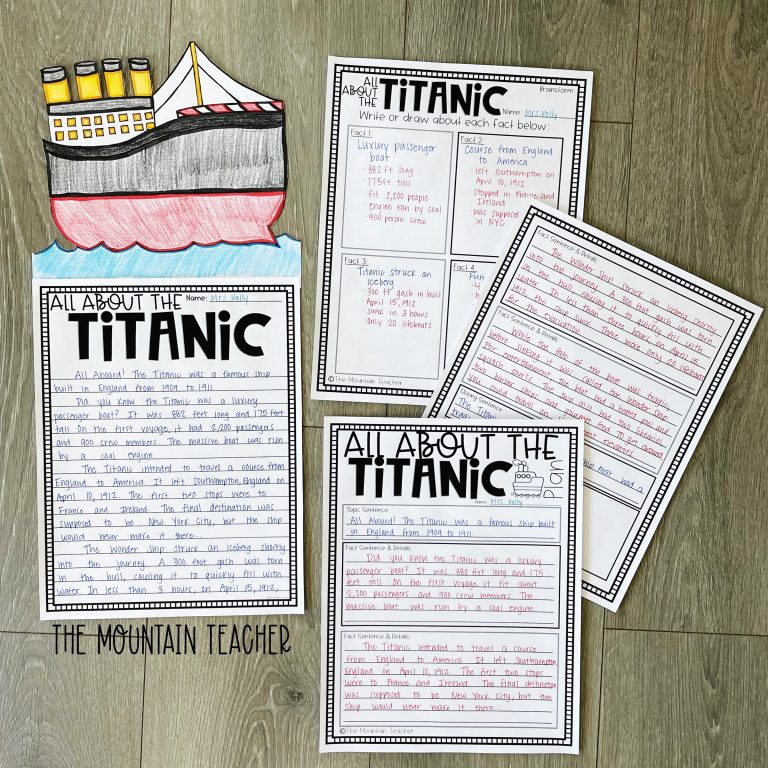 ALL ABOUT THE
Name: Mrs. Kelly
TITANIC
All Aboard! The Titanic was a famous ship
built in England from 1909 to 1911.
Did you know the Titanic was a luxury
passenger boat? It was 882 feet long and 175 feet
tall. On the first voyage, it had 2,200 passengers
and 900 crew members. The massive boat was run
by a coal engine.
The Titanic intended to travel a course from
England to America. It left Southampton, England on
April 10, 1912. The first two stops were to
France and Ireland. The final destination was
supposed to be New York City, but the ship
would never make it there...
The Wonder Ship struck an iceberg shortly
into the journey. A 300 foot gash was torn
in the hull, causing it to quickly fill with
water. In less than 3 hours, on April 15, 1912,
THE MOUNTAIN TEACHER
ALL ABOUT THE
TITANIC
Brainstorm
Name: Mrs. Kelly
Write or draw about each fact below:
Fact 1:
Luxury passenger
boat
· 882 ft. long
· 175 ft. tall
· fit 2,200 people
· engine ran by coal
· 900 person crew
Fact 2:
Course from England
to America
· left Southampton on
April 10, 1912
· stopped in France and
Ireland
· was supposed
in NYC
Fact 3:
Titanic struck an
iceberg
· 300 ft. gash in hull
· April 15, 1912
· sunk in 3 hours
· Only 20 lifeboats
Fact 4:
Fun
©The Mountain Teacher
Fact Sentence & Details
The Wonder Ship struck an iceberg shortly
into the journey. A 300 foot gash was torn
in the hull, causing it to quickly fill with
water. In less than three hours, on April 15,
1912, the ship sunk. There were only 20 lifeboats
for the evacuation.
Fact Sentence & Details
While the fate of the boat was tragic,
before sinking it was called the Wonder Ship.
For entertainment, the boat had a heated pool and
squash courts. The ship also had two libraries,
two barber shops, and
you could travel
elevators.
Closing Sentence
The Titanic
ship that had a
ALL ABOUT THE
TITANIC
Plan
Name: Mrs. Kelly
Topic Sentence
All Aboard! The Titanic was a famous ship built
in England from 1909 to 1911.
Fact Sentence & Details
Did you know the Titanic was a luxury
passenger boat? It was 882 feet long and 175
feet tall. On the first voyage it fit about
2,200 passengers and 900 crew members. The
massive boat was run by a coal engine.
Fact Sentence & Details
The Titanic intended to travel a course
from England to America. It left Southampton,
England on April 10, 1912. The first two stops
were to France and Ireland. The final destination
was supposed to be New York City, but the
ship would never make it there...
©The Mountain Teacher